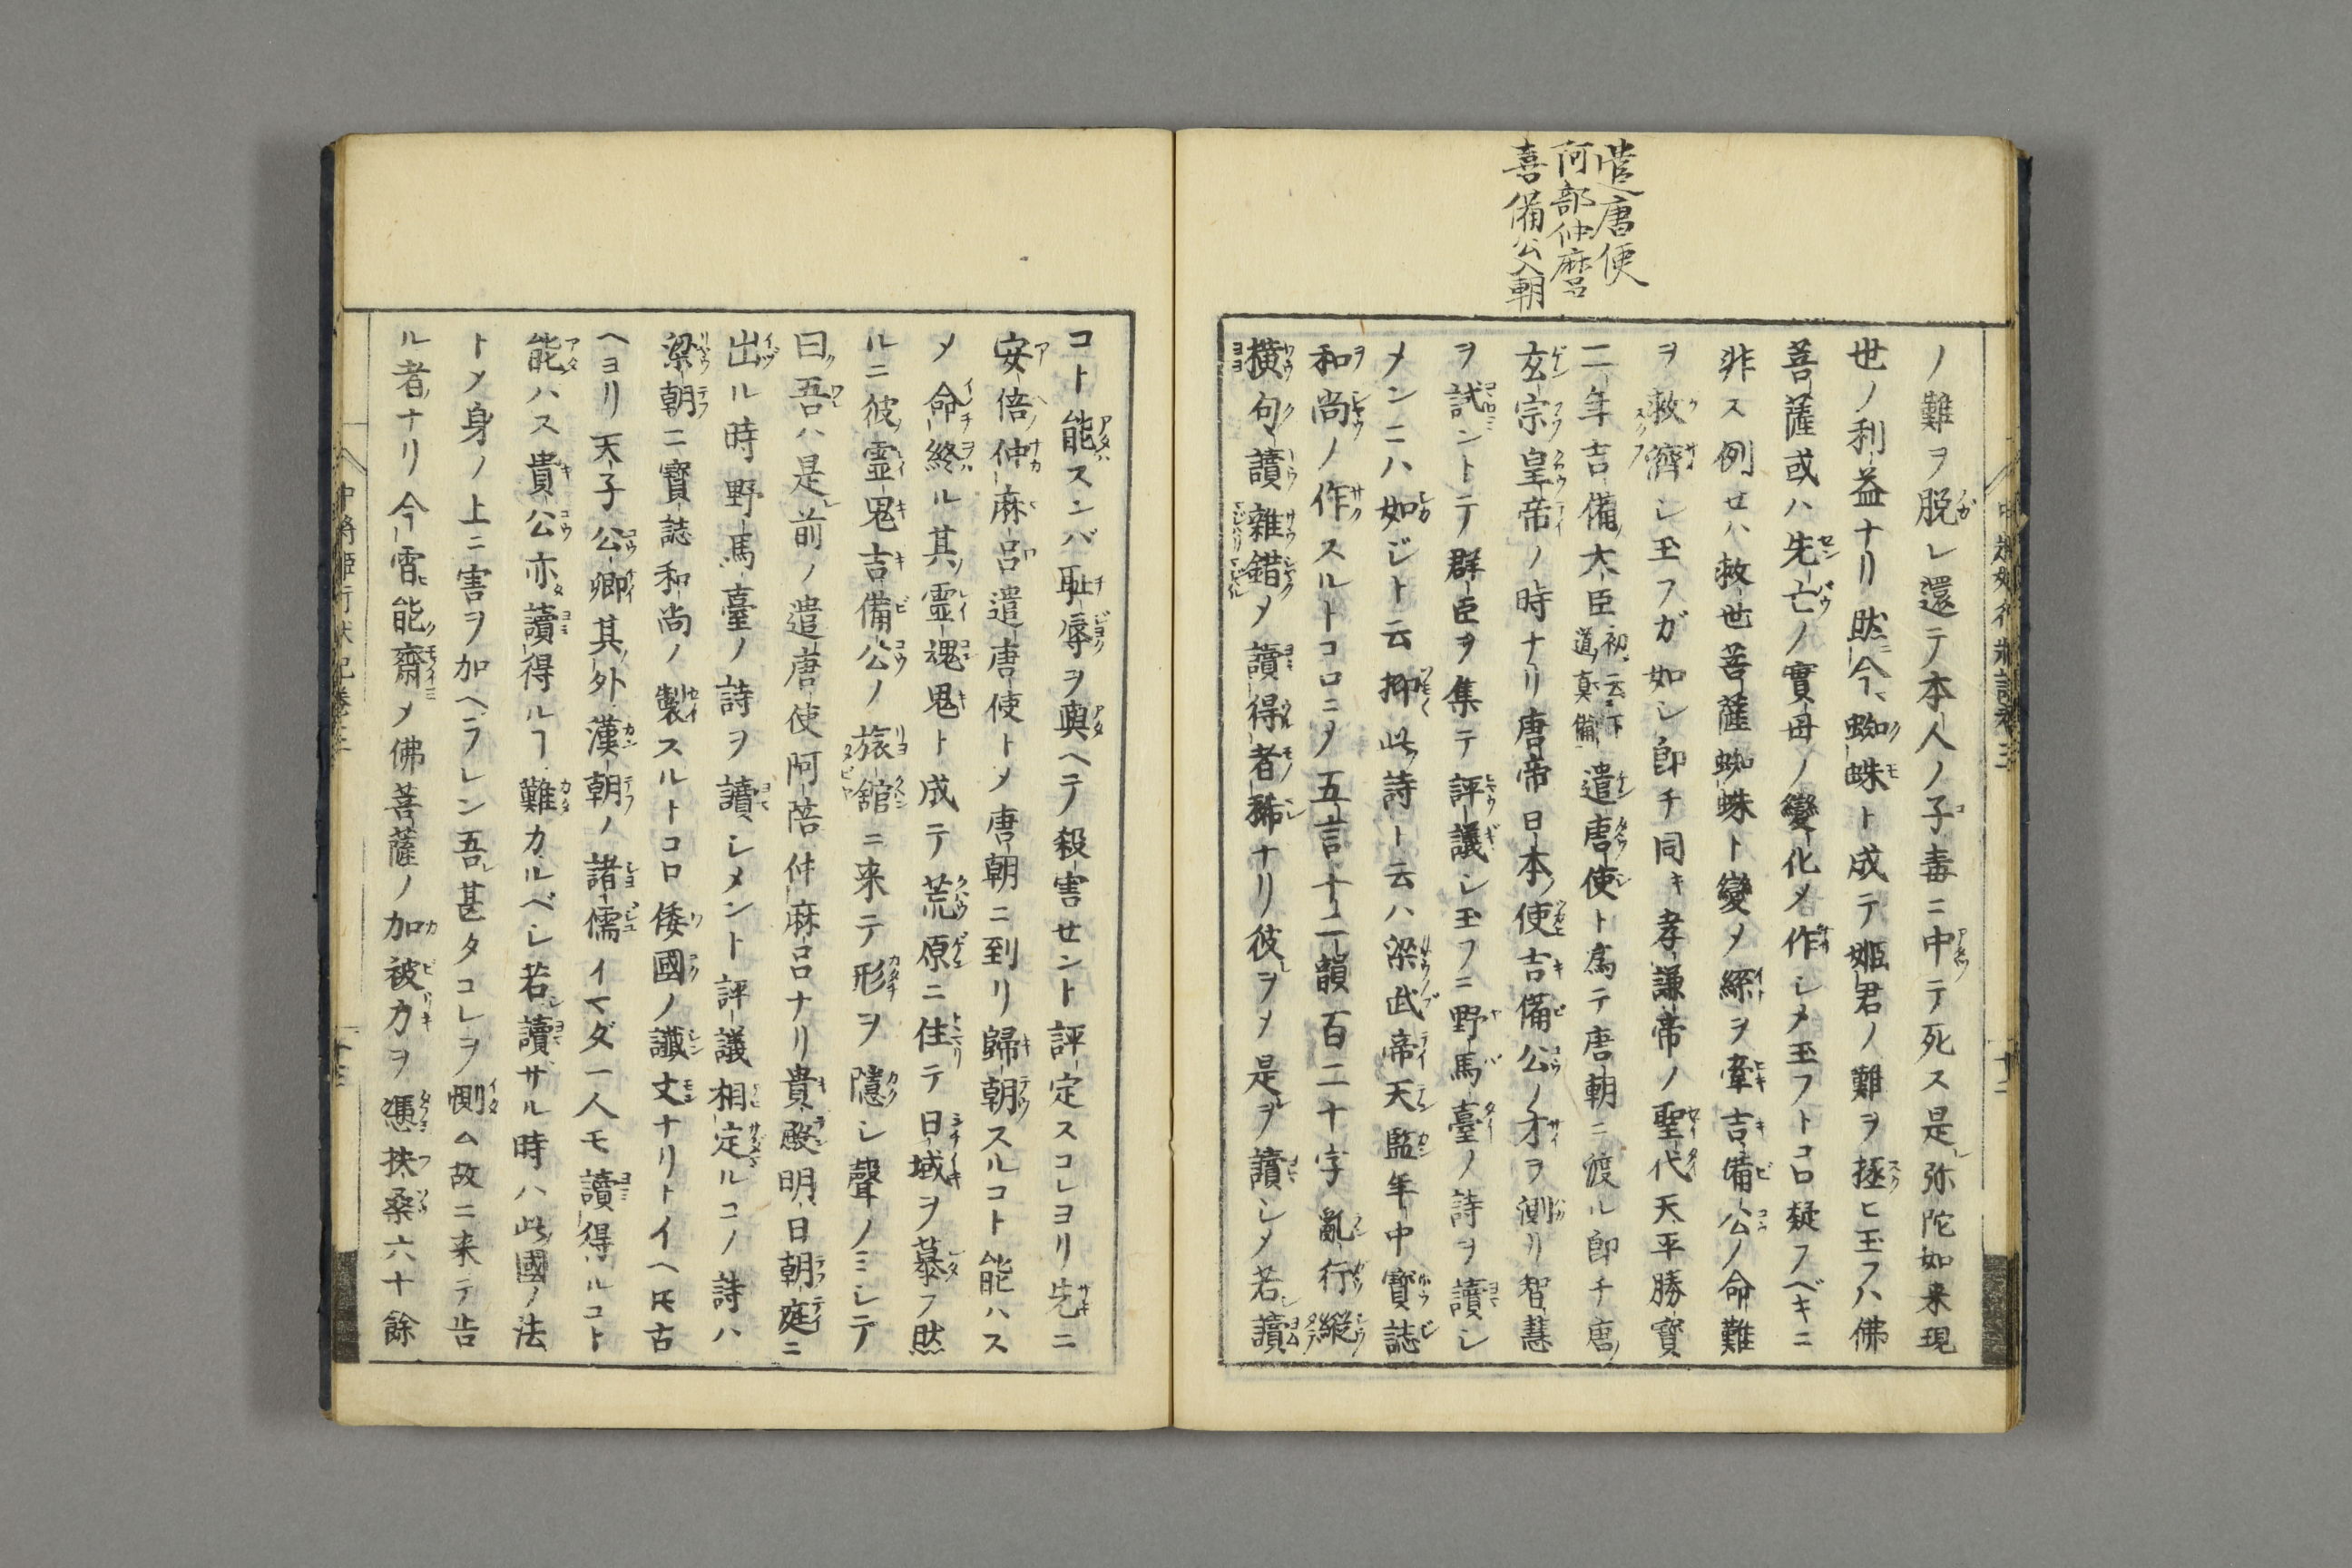 遣唐使
阿部仲麿
喜備公入朝
ノ難ヲ脱レ還テ本人ノ子毒ニ中テ死ス是弥陀如来現
世ノ利益ナリ然ニ今蜘蛛ト成テ姫君ノ難ヲ拯ヒ玉フハ佛
菩薩或ハ先亡ノ實母ノ變化メ作シメ玉フトコロ疑フベキニ
非ス例セハ救世菩薩蜘蛛ト變メ綵ヲ牽吉備公ノ命難
ヲ救濟シ玉フガ如シ即チ同キ孝謙帝ノ聖代天平勝寳
二年吉備大臣初云下道真備遣唐使ト爲テ唐朝ニ渡ル即チ唐ノ
玄宗皇帝ノ時ナリ唐帝日本ノ使吉備公ノ才ヲ測リ智慧
ヲ試ントテ群臣ヲ集テ評議シ玉フニ野馬臺ノ詩ヲ讀シ
メンニハ如ジト云抑此詩ト云ハ梁武帝天監年中寳誌
和尚ノ作スルトコロニメ五言十二韻百二十字亂行縱
横句讀雜錯メ讀得者稀ナリ彼ヲメ是ヲ讀シメ若讀
コト能スンバ耻辱ヲ與ヘテ殺害セント評定スコレヨリ先ニ
安倍仲麻呂遣唐使トメ唐朝ニ到リ歸朝スルコト能ハス
メ命終ル其霊魂鬼ト成テ荒原ニ住テ日域ヲ慕フ然
ルニ彼霊鬼吉備公ノ旅舘ニ来テ形ヲ隱シ聲ノミシテ
曰ク吾ハ是前ノ遣唐使阿陪仲麻呂ナリ貴殿明日朝庭ニ
出ル時野馬臺ノ詩ヲ讀シメント評議相定ルコノ詩ハ
梁朝ニ寳誌和尚ノ製スルトコロ倭國ノ讖文ナリトイヘ𪜈古
ヘヨリ天子公卿其外漢朝ノ諸儒イマダ一人モ讀得ルコト
能ハス貴公亦讀得ルヿ難カルベシ若讀サル時ハ此國ノ法
トメ身ノ上ニ害ヲ加ヘラレン吾甚タコレヲ惻ム故ニ来テ告
ル者ナリ今霄能齋メ佛菩薩ノ加被力ヲ憑扶桑六十餘